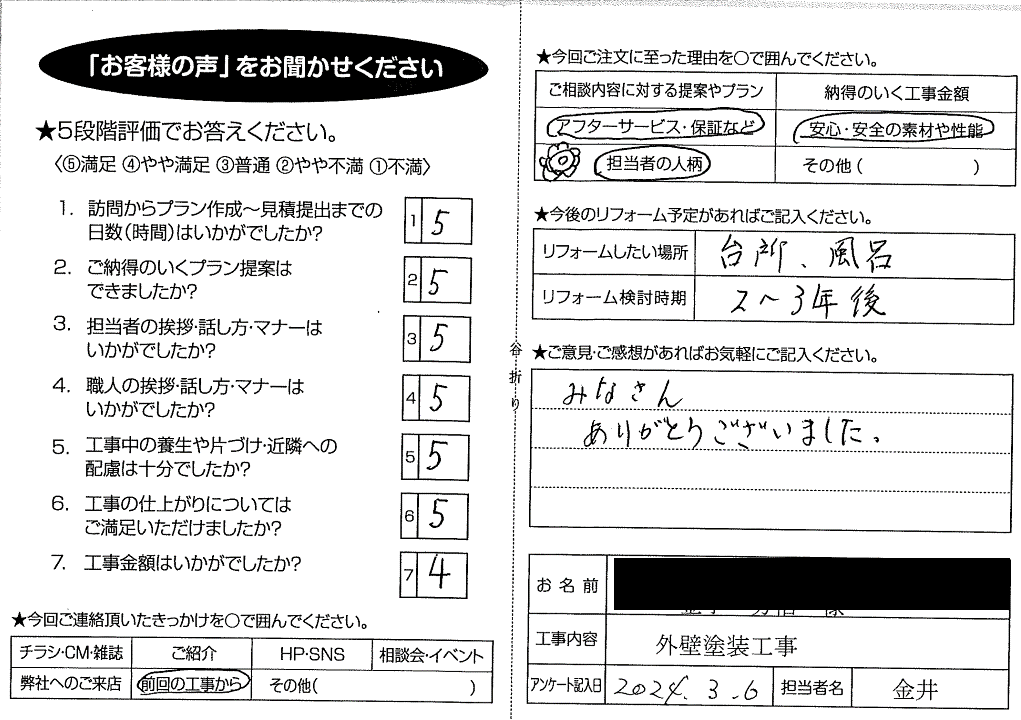 「お客様の声」をお聞かせください
★5段階評価でお答えください。
〈⑤満足 ④やや満足 ③普通 ②やや不満 ①不満〉
1. 訪問からプラン作成～見積提出までの
日数(時間)はいかがでしたか?
1 5
2. ご納得のいくプラン提案は
できましたか?
2 5
3. 担当者の挨拶・話し方・マナーは
いかがでしたか?
3 5
4. 職人の挨拶・話し方・マナーは
いかがでしたか?
4 5
5. 工事中の養生や片づけ・近隣への
配慮は十分でしたか?
5 5
6. 工事の仕上がりについては
ご満足いただけましたか?
6 5
7. 工事金額はいかがでしたか?
7 4
★今回ご連絡頂いたきっかけを○で囲んでください。
チラシ・CM・雑誌 ご紹介 HP・SNS 相談会・イベント
弊社へのご来店 前回の工事から その他( )
谷折り
★今回ご注文に至った理由を○で囲んでください。
ご相談内容に対する提案やプラン 納得のいく工事金額
アフターサービス・保証など 安心・安全の素材や性能
担当者の人柄 その他( )
★今後のリフォーム予定があればご記入ください。
リフォームしたい場所 台所、風呂
リフォーム検討時期 2～3年後
★ご意見・ご感想があればお気軽にご記入ください。
みなさん
ありがとうございました。
お名前
工事内容 外壁塗装工事
アンケート記入日 2024.3.6 担当者名 金井